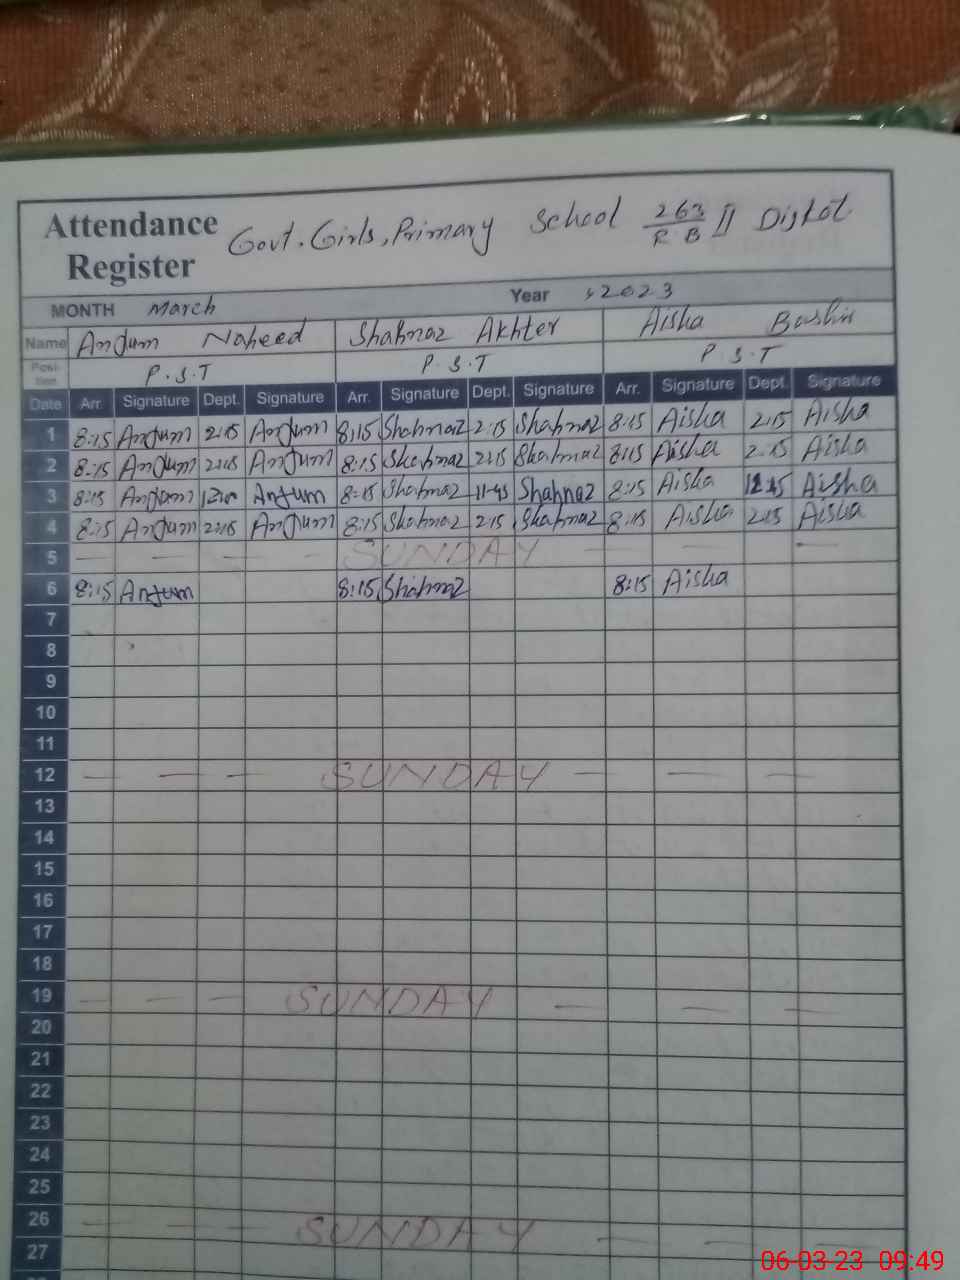 Attendance Register Govt. Girls, Primary School 263/RB II Distt
MONTH March Year 2023
Name Anjum Naheed Shahnaz Akhter Aisha Bashir
Position P.S.T P.S.T P.S.T
Date Arr. Signature Dept. Signature Arr. Signature Dept. Signature Arr. Signature Dept. Signature
1 8:15 Anjum 2:15 Anjum 8:15 Shahnaz 2:15 Shahnaz 8:15 Aisha 2:15 Aisha
2 8:15 Anjum 2:15 Anjum 8:15 Shahnaz 2:15 Shahnaz 8:15 Aisha 2:15 Aisha
3 8:15 Anjum Anjum 8:15 Shahnaz 11:45 Shahnaz 8:15 Aisha Aisha
4 8:15 Anjum 2:15 Anjum 8:15 Shahnaz 2:15 Shahnaz 8:15 Aisha 2:15 Aisha
5 SUNDAY
6 8:15 Anjum 8:15 Shahnaz 8:15 Aisha
7
8
9
10
11
12 SUNDAY
13
14
15
16
17
18
19 SUNDAY
20
21
22
23
24
25
26 SUNDAY
27
06-03-23 09:49